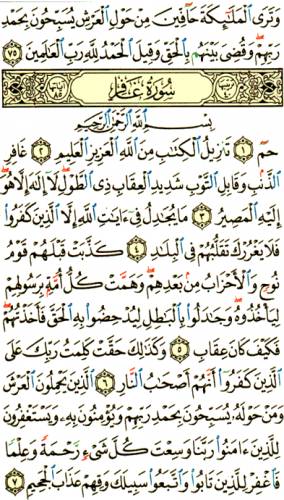 وَتَرَى ٱلْمَلَٰٓئِكَةَ حَآفِّينَ مِنْ حَوْلِ ٱلْعَرْشِ يُسَبِّحُونَ بِحَمْدِ
رَبِّهِمْ وَقُضِىَ بَيْنَهُم بِٱلْحَقِّ وَقِيلَ ٱلْحَمْدُ لِلَّهِ رَبِّ ٱلْعَٰلَمِينَ ٧٥
سُورَةُ غَافِرٍ
بِسْمِ ٱللَّهِ ٱلرَّحْمَٰنِ ٱلرَّحِيمِ
حمٓ ١ تَنزِيلُ ٱلْكِتَٰبِ مِنَ ٱللَّهِ ٱلْعَزِيزِ ٱلْعَلِيمِ ٢ غَافِرِ
ٱلذَّنۢبِ وَقَابِلِ ٱلتَّوْبِ شَدِيدِ ٱلْعِقَابِ ذِى ٱلطَّوْلِ لَآ إِلَٰهَ إِلَّا هُوَ
إِلَيْهِ ٱلْمَصِيرُ ٣ مَا يُجَٰدِلُ فِىٓ ءَايَٰتِ ٱللَّهِ إِلَّا ٱلَّذِينَ كَفَرُوا۟
فَلَا يَغْرُرْكَ تَقَلُّبُهُمْ فِى ٱلْبِلَٰدِ ٤ كَذَّبَتْ قَبْلَهُمْ قَوْمُ
نُوحٍ وَٱلْأَحْزَابُ مِنۢ بَعْدِهِمْ وَهَمَّتْ كُلُّ أُمَّةٍۭ بِرَسُولِهِمْ
لِيَأْخُذُوهُ وَجَٰدَلُوا۟ بِٱلْبَٰطِلِ لِيُدْحِضُوا۟ بِهِ ٱلْحَقَّ فَأَخَذْتُهُمْ
فَكَيْفَ كَانَ عِقَابِ ٥ وَكَذَٰلِكَ حَقَّتْ كَلِمَتُ رَبِّكَ عَلَى
ٱلَّذِينَ كَفَرُوٓا۟ أَنَّهُمْ أَصْحَٰبُ ٱلنَّارِ ٦ ٱلَّذِينَ يَحْمِلُونَ ٱلْعَرْشَ
وَمَنْ حَوْلَهُۥ يُسَبِّحُونَ بِحَمْدِ رَبِّهِمْ وَيُؤْمِنُونَ بِهِۦ وَيَسْتَغْفِرُونَ
لِلَّذِينَ ءَامَنُوا۟ رَبَّنَا وَسِعْتَ كُلَّ شَىْءٍ رَّحْمَةً وَعِلْمًا
فَٱغْفِرْ لِلَّذِينَ تَابُوا۟ وَٱتَّبَعُوا۟ سَبِيلَكَ وَقِهِمْ عَذَابَ ٱلْجَحِيمِ ٧